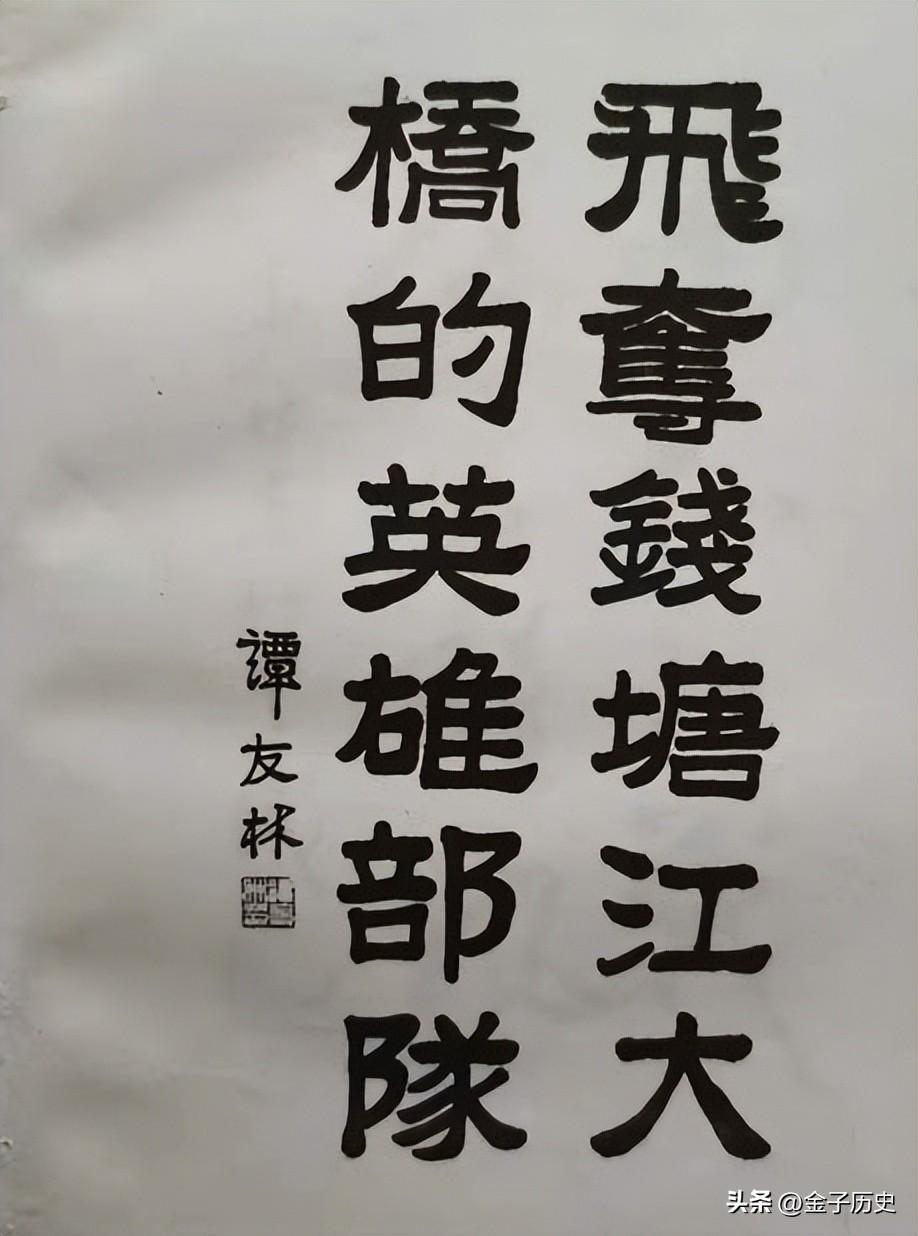 飛奪錢塘江大
橋的英雄部隊
譚友林
头条 @金子历史